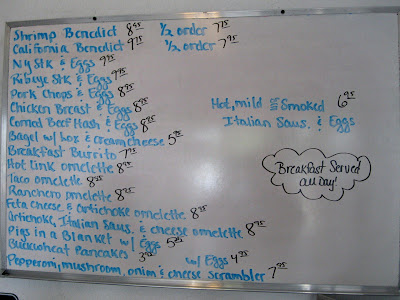 Shrimp Benedict 8.95 1/2 order 7.75
California Benedict 9.75 1/2 order 7.95
NY Stk & Eggs 9.95
Ribeye Stk & Eggs 9.95
Pork Chops & Eggs 8.95
Chicken Breast & Eggs 8.95
Corned Beef Hash & Eggs 8.75
Bagel w/ lox & creamcheese 5.95
Breakfast Burrito 7.95
Hot link omelette 8.95
Taco omelette 8.95
Ranchero omelette 8.95
Feta cheese & Artichoke omelette 8.95
Artichoke, Italian Saus. & cheese omelette 8.95
Pigs in a Blanket w/ Egg 5.25
Buckwheat Pancakes 3.95 w/ Eggs 4.95
Pepperoni, mushroom, onion & cheese Scrambler 7.95
Hot, mild Smoked 6.95
Italian Saus. & Eggs
Breakfast Served
All Day!